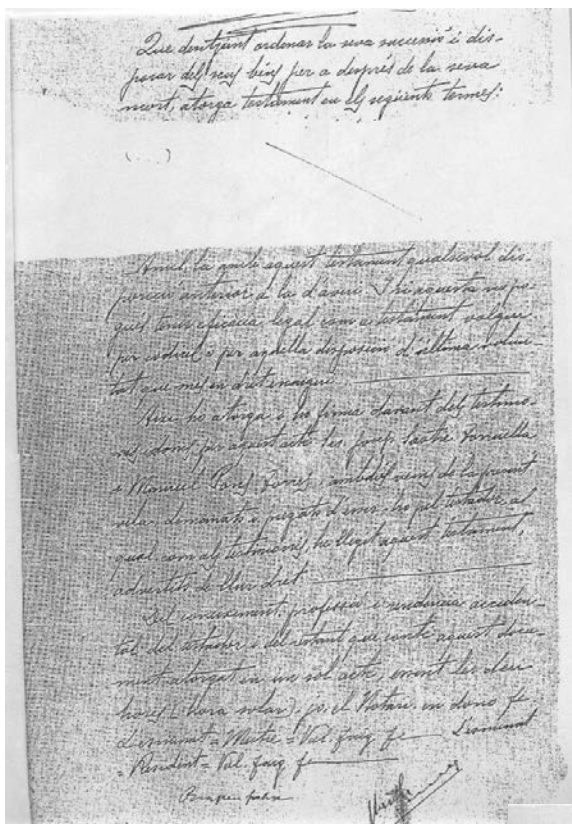 Que desitjant ordenar la seva successió i dis-
posar dels seus béns per a després de la seva
mort, atorga testament en els següents termes:
(...)
Anul·la amb aquest testament qualsevol dis-
posició anterior a la d'avui. I si aquesta no po-
gués tenir eficacia legal com a testament valgui
per codicil o per aquella disposició d'última volun-
tat que mes en dret
Així ho atorga i ho firma davant dels testimo-
nis idonis per aquest acte les Josep Sastre
i Manuel Pons, ambdós veïns de la present
vila demanats i pregats d'esser-ho pel testador al
qual com als testimonis, he llegit aquest testament,
advertits de llur dret
Del coneixement, professió i residencia acciden-
tal del testador i del restant que conté aquest docu-
ment atorgat en un sol acte, essent les deu
hores (hora solar), jo, el Notari, en dono fe.
Esmenat = Mestre = Val. faig fe Esmenat
= Resident = Val. faig fe